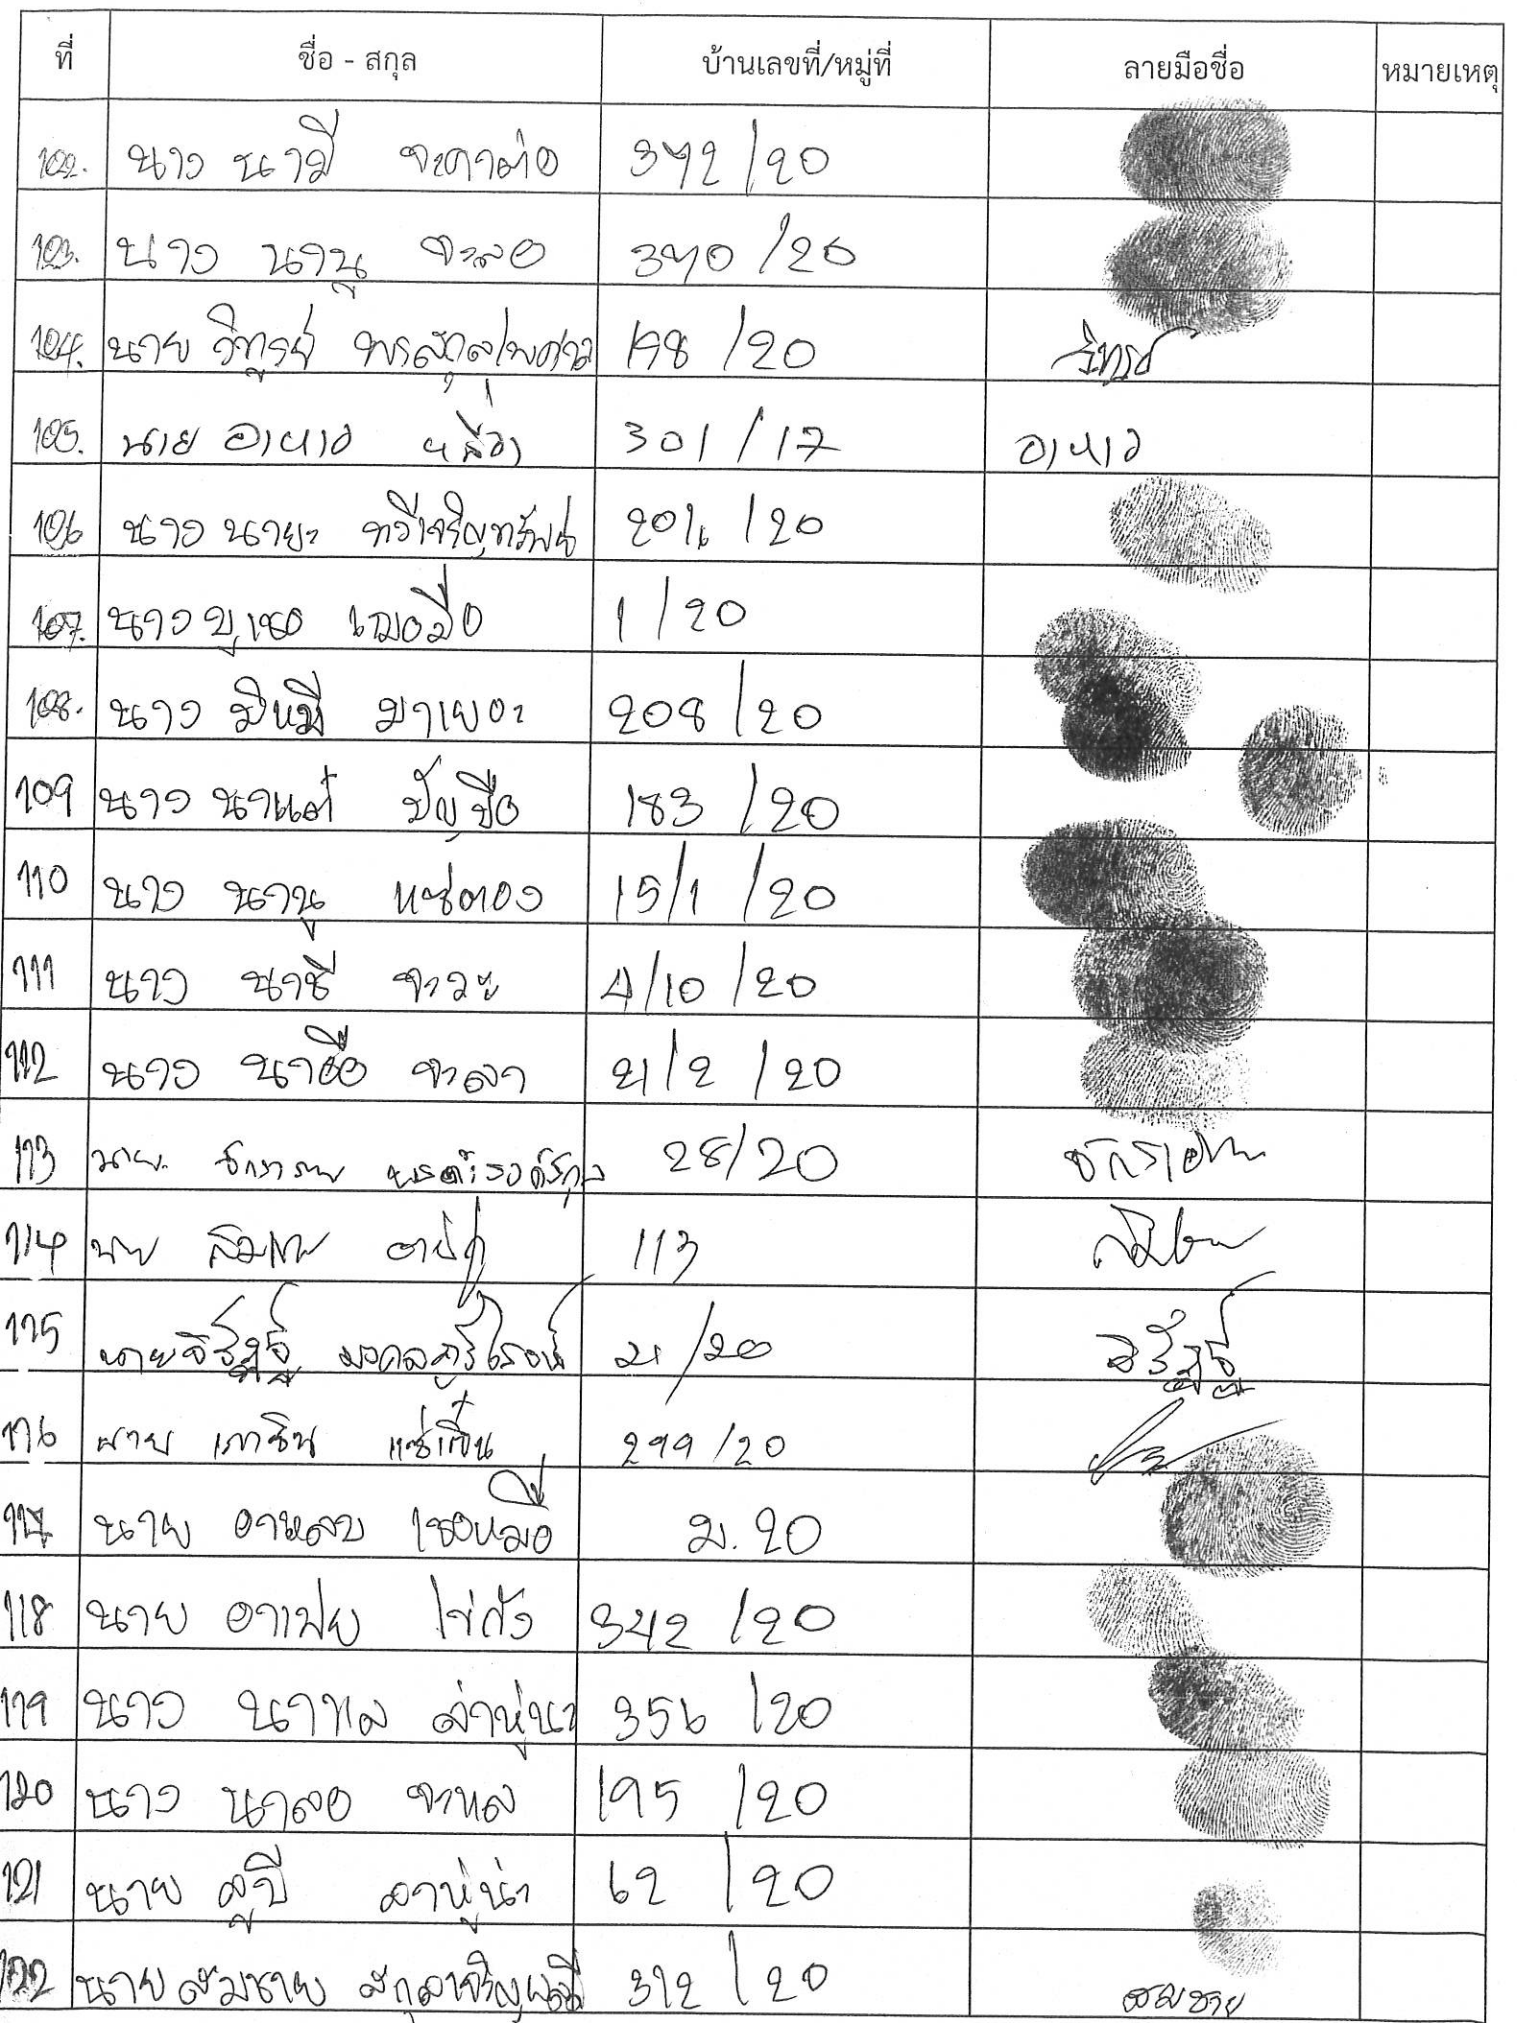 ที่ ชื่อ - สกุล บ้านเลขที่/หมู่ที่ ลายมือชื่อ หมายเหตุ
102. นาง นามี จะคาต่อ 372/20
103. นาง นานู จะลอ 370/20
104. นาย วิฑูรย์ พรสกุลไพศาล 198/20 วิฑูรย์
105. นาย อาหาว 301/17 อาหาว
106 นาง นายะ ทวีเจริญทรัพย์ 206/20
107. นาง บูเชอ เฌอมือ 1/20
108. นาง มีหมี มาเยอะ 208/20
109 นาง นาแต๋ ปัญปือ 183/20
110 นาง นานู แซ่ตอง 15/1/20
111 นาง นาซี จะวะ 4/10/20
112 นาง นาอื่อ จะลา 21/2/20
113 นาย 28/20
114 นาย 113
115 นาย 21/20
116 นาย เกาชิน แซ่เติ๋น 299/20
117 นาย อาหลบ เชอหมื่อ ม.20
118 นาย อาเฟย ไข่ถัง 342/20
119 นาง นาแล ล่าหู่นา 356/20
120 นาง นาลอ จะหล 195/20
121 นาย ลูปี ลาหู่น่า 62/20
122 นาย สมชาย สกุลเจริญ 312/20 สมชาย